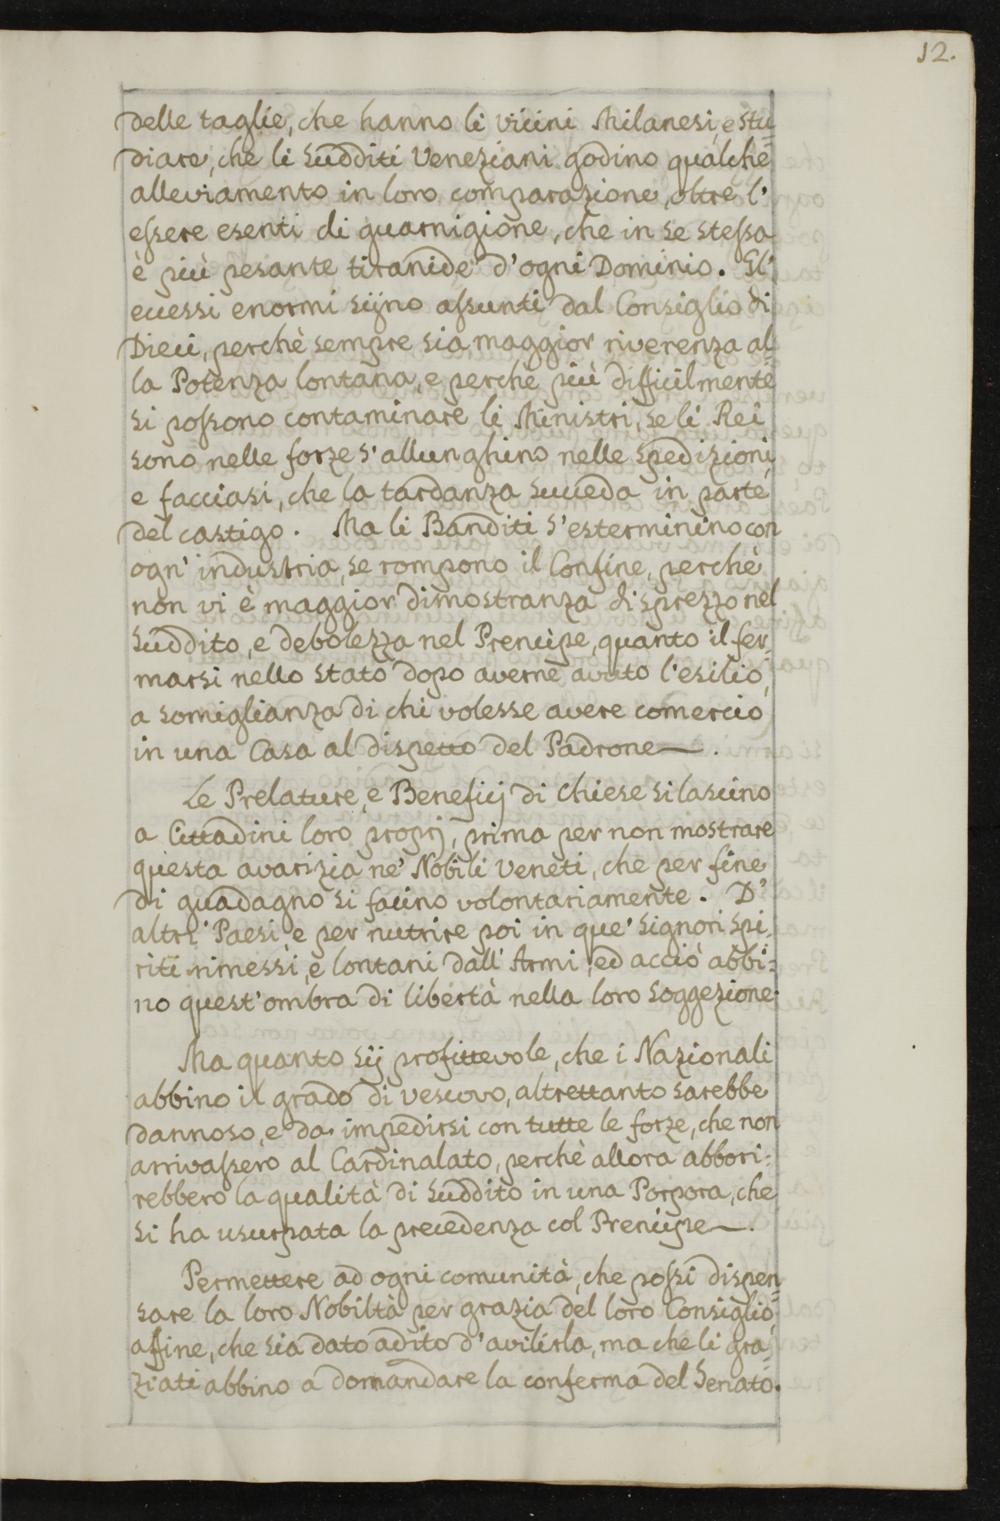 12.
delle taglie, che hanno li vicini Milanesi, e stu=
diare, che li sudditi Veneziani godino qualche
alleviamento in loro comparazione, oltre l'
essere esenti di guarnigione, che in se stessa
è più pesante tiranide d'ogni Dominio. Gl'
ecessi enormi sijno assunti dal Consiglio di
Dieci, perchè sempre sia maggior riverenza al=
la Potenza lontana, e perchè più difficilmente
si possono contaminare li Ministri, se li Rei
sono nelle forze s'allunghino nelle spedizioni,
e facciasi, che la tardanza succeda in parte
del castigo. Ma li Banditi s'esterminino con
ogn' industria, se rompono il Confine, perchè
non vi è maggior dimostranza di sprezzo nel
suddito, e debolezza nel Prencipe, quanto il fer,
marsi nello stato dopo averne avuto l'esilio,
a somiglianza di chi volesse avere comercio
in una Casa al dispetto del Padrone—.
Le Prelature, e Beneficj di Chiese si lascino
a Cittadini loro proprj, prima per non mostrare
questa avarizia ne' Nobili Veneti, che per fine
di guadagno si facino volontariamente. D'
altri Paesi e per nutrire poi in que' signori spi,
riti rimessi, e lontani dall' Armi, ed acciò abbi=
no quest'ombra di libertà nella loro soggezione.
Ma quanto sij profittevole, che i Nazionali
abbino il grado di vescovo, altrettanto sarebbe
dannoso, e da impedirsi con tutte le forze, che non
arrivassero al Cardinalato, perchè allora abbori=
rebbero la qualità di suddito in una Porpora, che
si ha usurpata la precedenza col Prencipe—.
Permettere ad ogni comunità, che possi dispen=
sare la loro Nobiltà per grazia del loro Consiglio,
affine, che sia dato adito d'avilirla, ma che li gra=
ziati abbino a domandare la conferma del Senato.